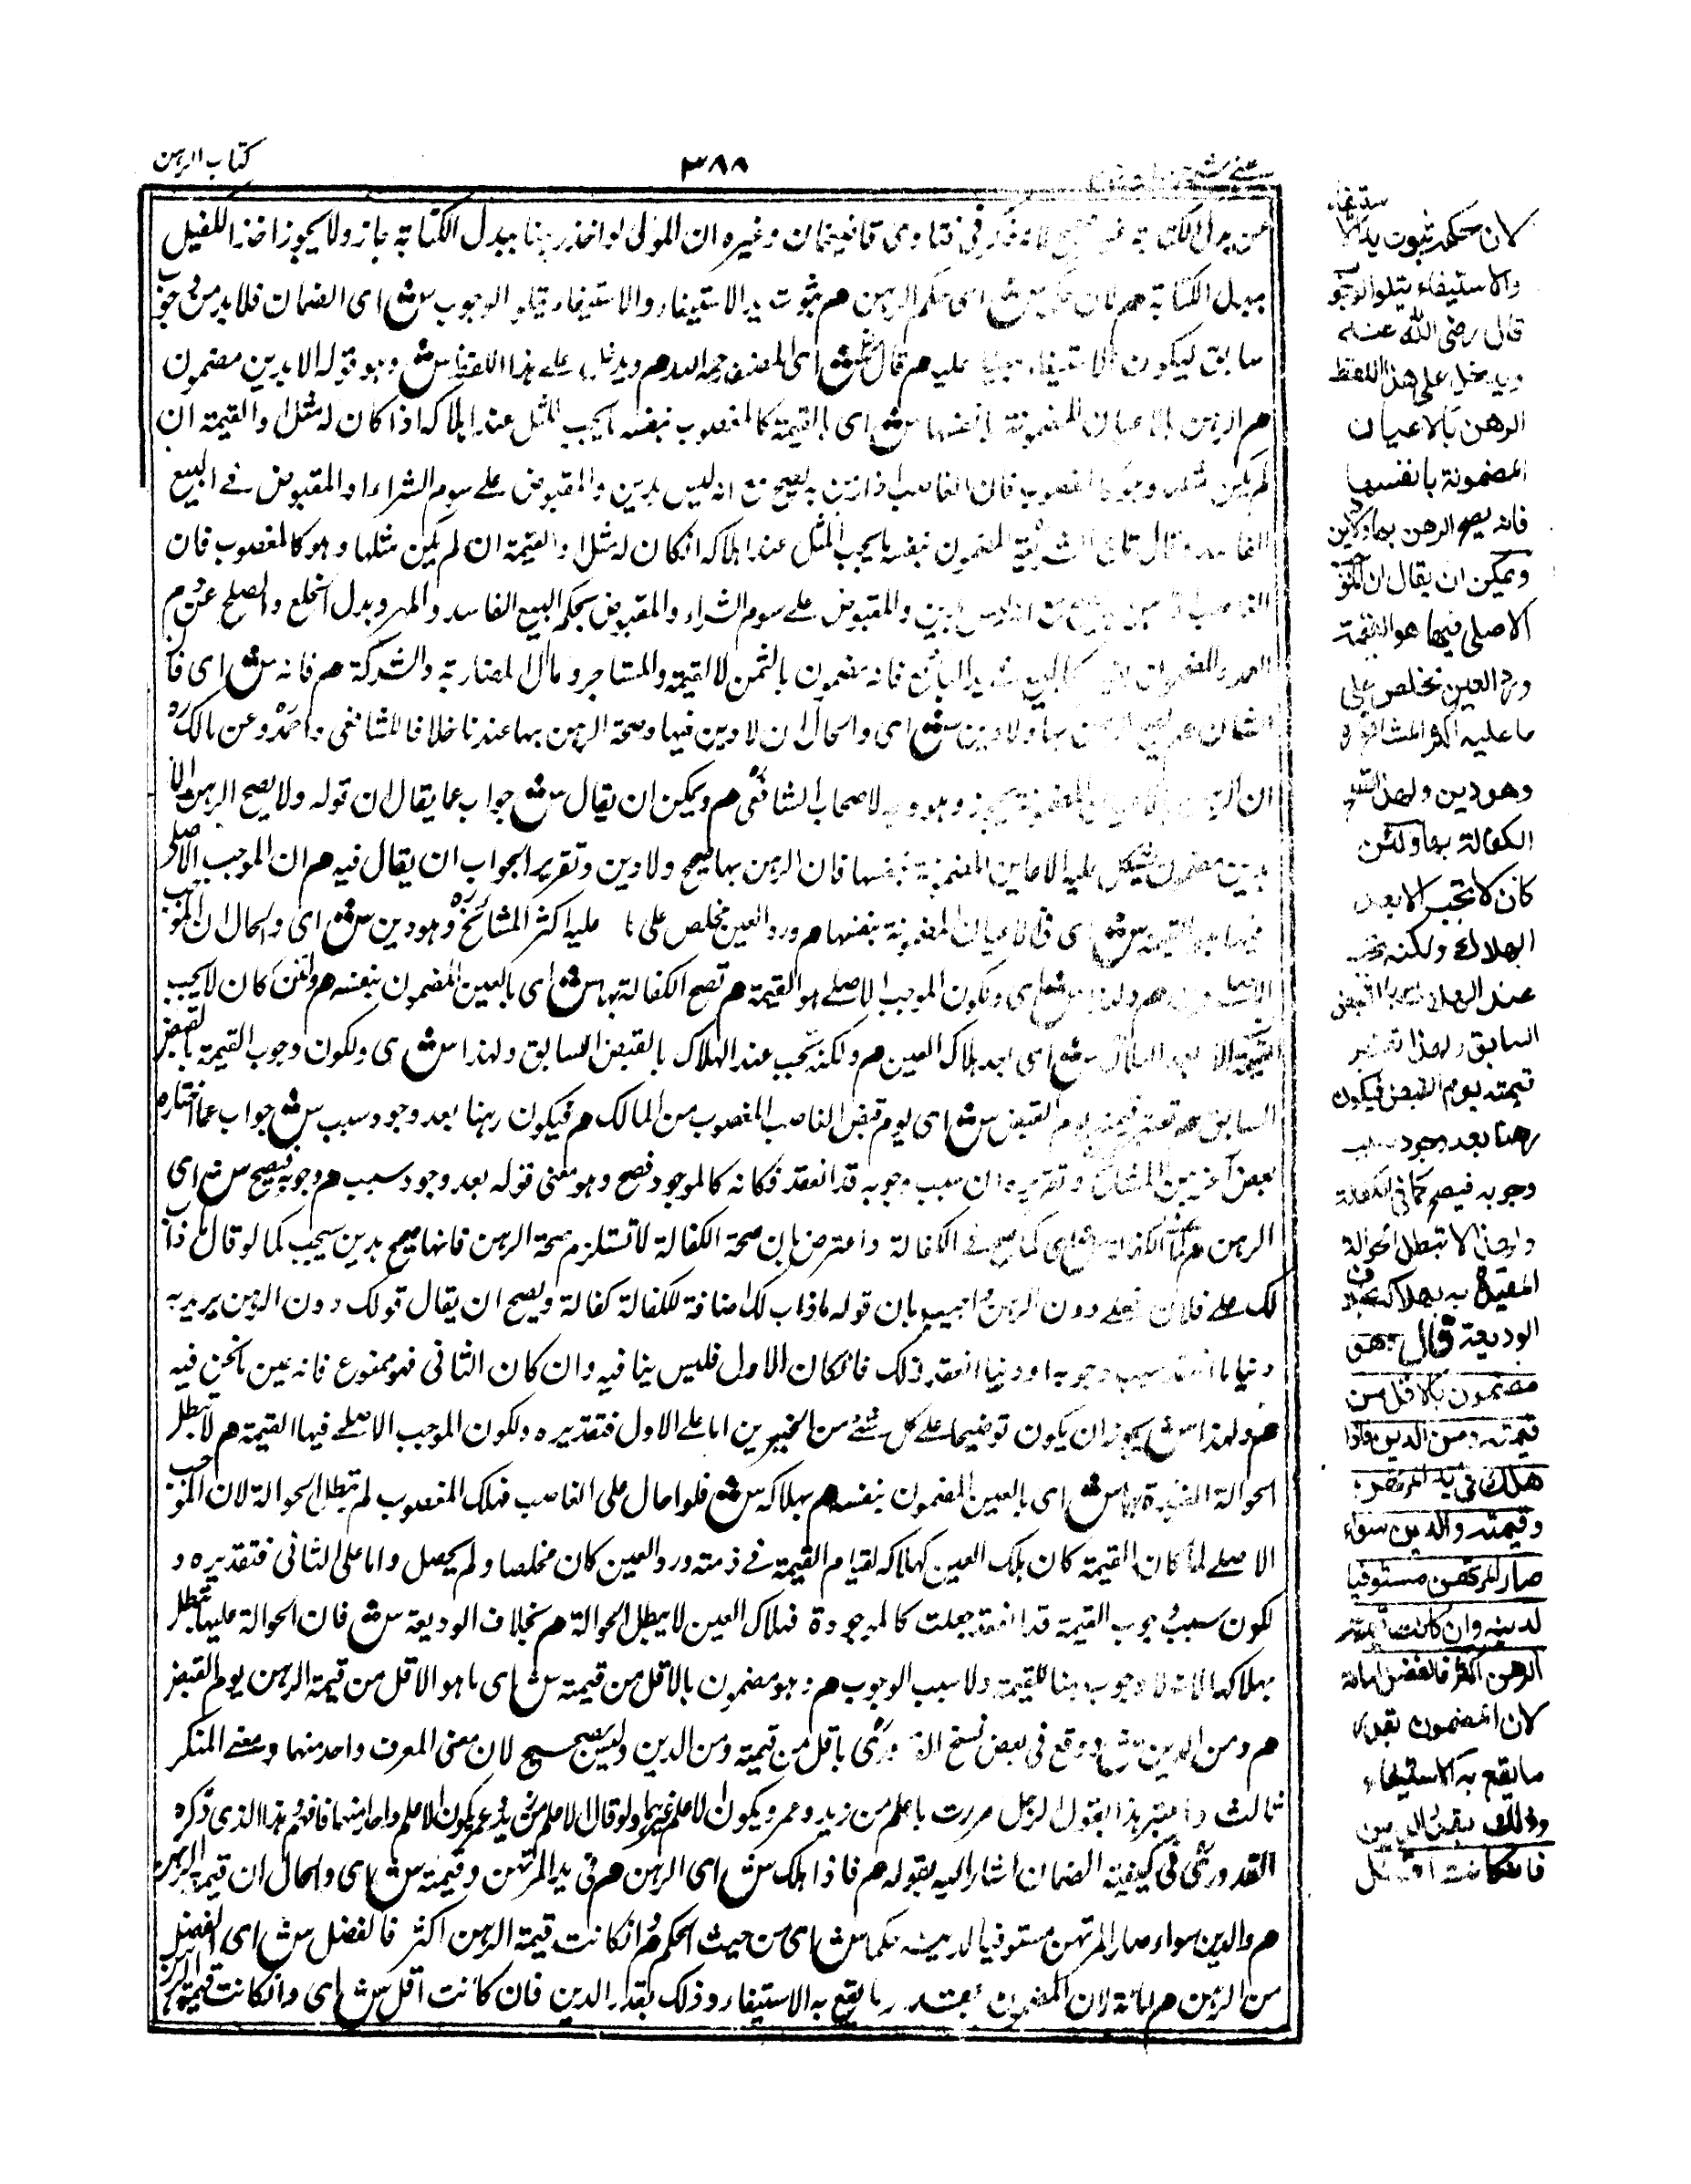 كتاب الرهن
٣٨٨
عن بدل الكتابة غير صحيح لانه ذكر في فتاوى قاضيخان وغيره ان المولى لو اخذ رهنا ببدل الكتابة جاز ولا يجوز اخذ الكفيل
ببدل الكتابة هم لان حكمه ش اى حكم الرهن هم ثبوت يد الاستيفاء والاستيفاء يتلو الوجوب ش اى الضمان فلا بد من وجوب
سابق ليكون الاستيفاء مبنيا عليه هم قال ش اى المصنف رحمه الله هم ويدخل على هذا اللفظ ش وهو قوله الا بدين مضمون
هم الرهن بالاعيان المضمونة بانفسها ش اى بالقيمة كالمغصوب بنفسه يجب المثل عند هلاكه اذا كان له مثل او القيمة ان
لم يكن مثله وهو كالمغصوب فان الغاصب اذا رهن به يصح مع انه ليس بدين والمقبوض على سوم الشراء والمقبوض في البيع
الفاسد وقال تاج الشريعة المضمون بنفسه ما يجب المثل عند هلاكه ان كان له مثل او القيمة ان لم يكن مثلها وهو كالمغصوب فان
والمقبوض على سوم الشراء والمقبوض بحكم البيع الفاسد والمهر وبدل الخلع والصلح عن دم
العمد والمضمون بغيره كالمبيع في يد البائع فانه مضمون بالثمن لا القيمة والمستاجر ومال المضاربة والشركة هم فانه ش اى فان
الشان هم يصح الرهن بها ولا دين ش اى والحال ان لا دين فيها وصحة الرهن بها عندنا خلافا للشافعى واحمد وعن مالك
ان الرهن بالاعيان المضمونة يجوز وهو وجه لاصحاب الشافعى هم ويمكن ان يقال ش جواب عما يقال ان قوله ولا يصح الرهن الا
بدين مضمون يشكل عليه الاعيان المضمونة بنفسها فان الرهن بها صحيح ولا دين وتقرير الجواب ان يقال فيه هم ان الموجب الاصلى
فيها هو القيمة ش اى فى الاعيان المضمونة بنفسها هم ورد العين مخلص على ما عليه اكثر المشائخ وهو دين ش اى والحال ان الموجب
الاصلى دين هم ولهذا ش اى ولكون الموجب الاصلى هو القيمة هم تصح الكفالة بها ش اى بالعين المضمون بنفسه هم ولئن كان لا يجب
القيمة الا بعد الهلاك ش اى بعد هلاك العين هم ولكنه تجب عند الهلاك بالقبض السابق ولهذا ش اى ولكون وجوب القيمة بالقبض
السابق هم تعتبر قيمته يوم القبض ش اى يوم قبض الغاصب المغصوب من المالك هم فيكون رهنا بعد وجود سبب ش جواب عما اختاره
بعض آخر من المشائخ وتقريره ان سبب وجوبه قد انعقد فكانه كالموجود فصح وهو معنى قوله بعد وجود سبب هم وجوبه فيصح ش اى
الرهن هم كما فى الكفالة ش اى كما يصح فى الكفالة واعترض بان صحة الكفالة لا تستلزم صحة الرهن فانها تصح بدين سيجب كما لو قال ما ذاب
لك على فلان فعلى دون الرهن واجيب بان قوله ما ذاب لك اضافة للكفالة كفالة ويصح ان يقال قولك دون الرهن يريد به
دينا ما انعقد سبب وجوبه او دينا انعقد ذلك فان كان الاول فليس ينافيه وان كان الثانى فهو ممنوع فانه عين ما نحن فيه
هم ولهذا ش يجوز ان يكون توضيحا على كل شئ من الخبرين اما على الاول فتقديره ولكون الموجب الاصلى فيها القيمة هم لا تبطل
الحوالة المقيدة بها ش اى بالعين المضمون بنفسه هم بهلاكه ش فلو احال على الغاصب فهلك المغصوب لم تبطل الحوالة لان الموجب
الاصلى لما كان القيمة كان هلك العين كهلاكه لقيام القيمة فى ذمته ورد العين كان مخلصا ولم يحصل واما على الثانى فتقديره و
لكون سبب وجوب القيمة قد انعقد جعلت كالموجودة فهلاك العين لا يبطل الحوالة هم بخلاف الوديعة ش فان الحوالة عليها تبطل
بهلاكها لانه لا وجوب هنا للقيمة ولا سبب الوجوب هم وهو مضمون بالاقل من قيمته ش اى ما هو الاقل من قيمة الرهن يوم القبض
هم ومن الدين ش ووقع فى بعض نسخ القدورى باقل من قيمته ومن الدين وليس بصحيح لان معنى المعرف واحد منهما ومعنى المنكر
ثالث واعتبر هذا بقول الرجل مررت باعلم من زيد وعمرو ويكون الاعلم غيرهما ولو قال الاعلم من زيد وعمرو يكون الاعلم واحدا منهما فافهم هذا الذى ذكره
القدورى فى كيفية الضمان اشار اليه بقوله هم فاذا هلك ش اى الرهن هم فى يد المرتهن وقيمته ش اى والحال ان قيمة الرهن
هم والدين سواء صار المرتهن مستوفيا لدينه حكما ش اى من حيث الحكم هم وان كانت قيمة الرهن اكثر فالفضل ش اى الفضل
من الرهن هم امانة لان المضمون بقدر ما يقع به الاستيفاء وذلك بقدر الدين فان كانت اقل ش اى وان كانت قيمة الرهن
لان حكمه ثبوت يد الاستيفاء
والاستيفاء يتلو الوجوب
قال رضى الله عنه
ويدخل على هذا اللفظ
الرهن بالاعيان
المضمونة بانفسها
فانه يصح الرهن بها ولا دين
ويمكن ان يقال ان الموجب
الاصلى فيها هو القيمة
ورد العين مخلص على
ما عليه اكثر المشائخ
وهو دين ولهذا تصح
الكفالة بها ولئن
كان لا تجب الا بعد
الهلاك ولكنه تجب
عند الهلاك بالقبض
السابق ولهذا تعتبر
قيمته يوم القبض فيكون
رهنا بعد وجود سبب
وجوبه فيصح كما فى الكفالة
ولهذا لا تبطل الحوالة
المقيدة به بهلاكه بخلاف
الوديعة قال وهو
مضمون بالاقل من
قيمته ومن الدين فاذا
هلك فى يد المرتهن
وقيمته والدين سواء
صار المرتهن مستوفيا
لدينه وان كانت قيمة
الرهن اكثر فالفضل امانة
لان المضمون بقدر
ما يقع به الاستيفاء
وذلك بقدر الدين
فان كانت اقل